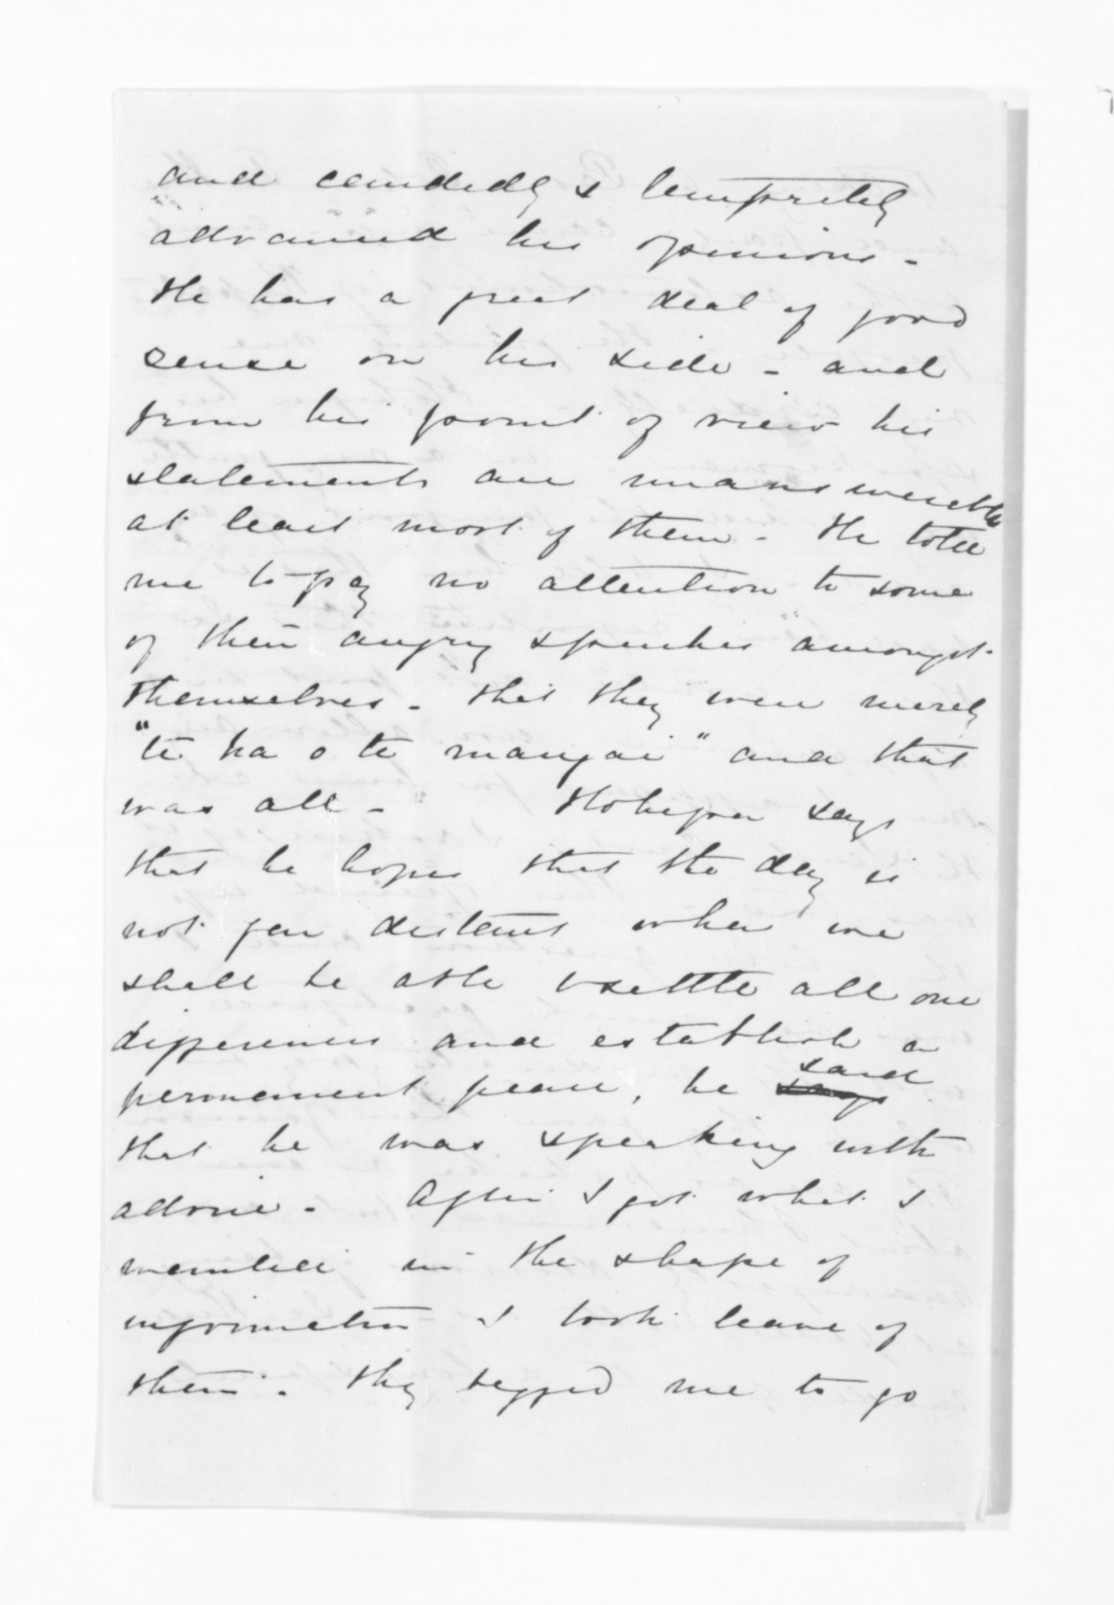 and candidly & temperately
advanced his opinions -
He has a great deal of good
sense on his side - and
from his point of view his
statements are unanswerable
at least most of them - He told
me to pay no attention to some
of their angry speeches amongst
themselves - that they were merely
"te ha o te mangai" and that
was all - Hohepa says
that he hopes that the day is
not far distant when we
shall be able to settle all our
differences and establish a
permanent peace, he says said
that he was speaking with
advice - After I got what I
wanted in the shape of
information I took leave of
them - they begged me to go